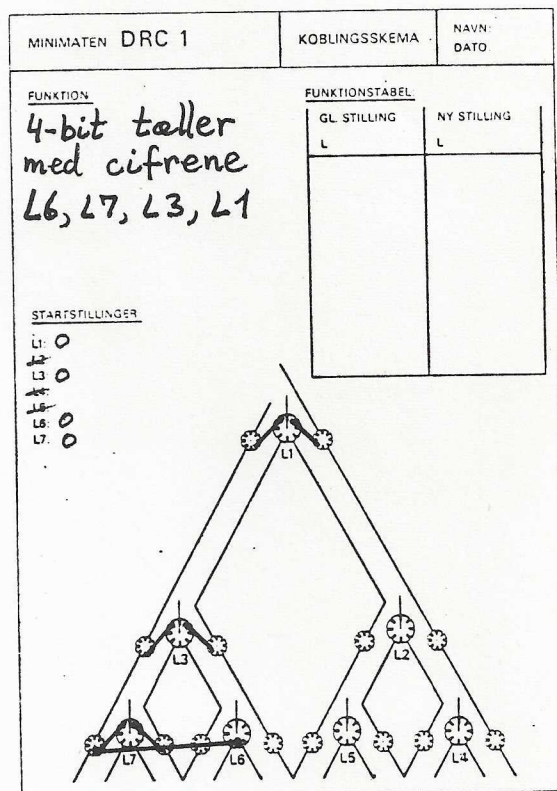 MINIMATEN DRC 1
KOBLINGSSKEMA
NAVN:
DATO
FUNKTION
4-bit tæller
med cifrene
L6, L7, L3, L1
FUNKTIONSTABEL
GL. STILLING NY STILLING
L L
STARTSTILLINGER
L1: 0
L2:
L3 0
L4:
L5:
L6: 0
L7. 0
L1
L3 L2
L7 L6 L5 L4